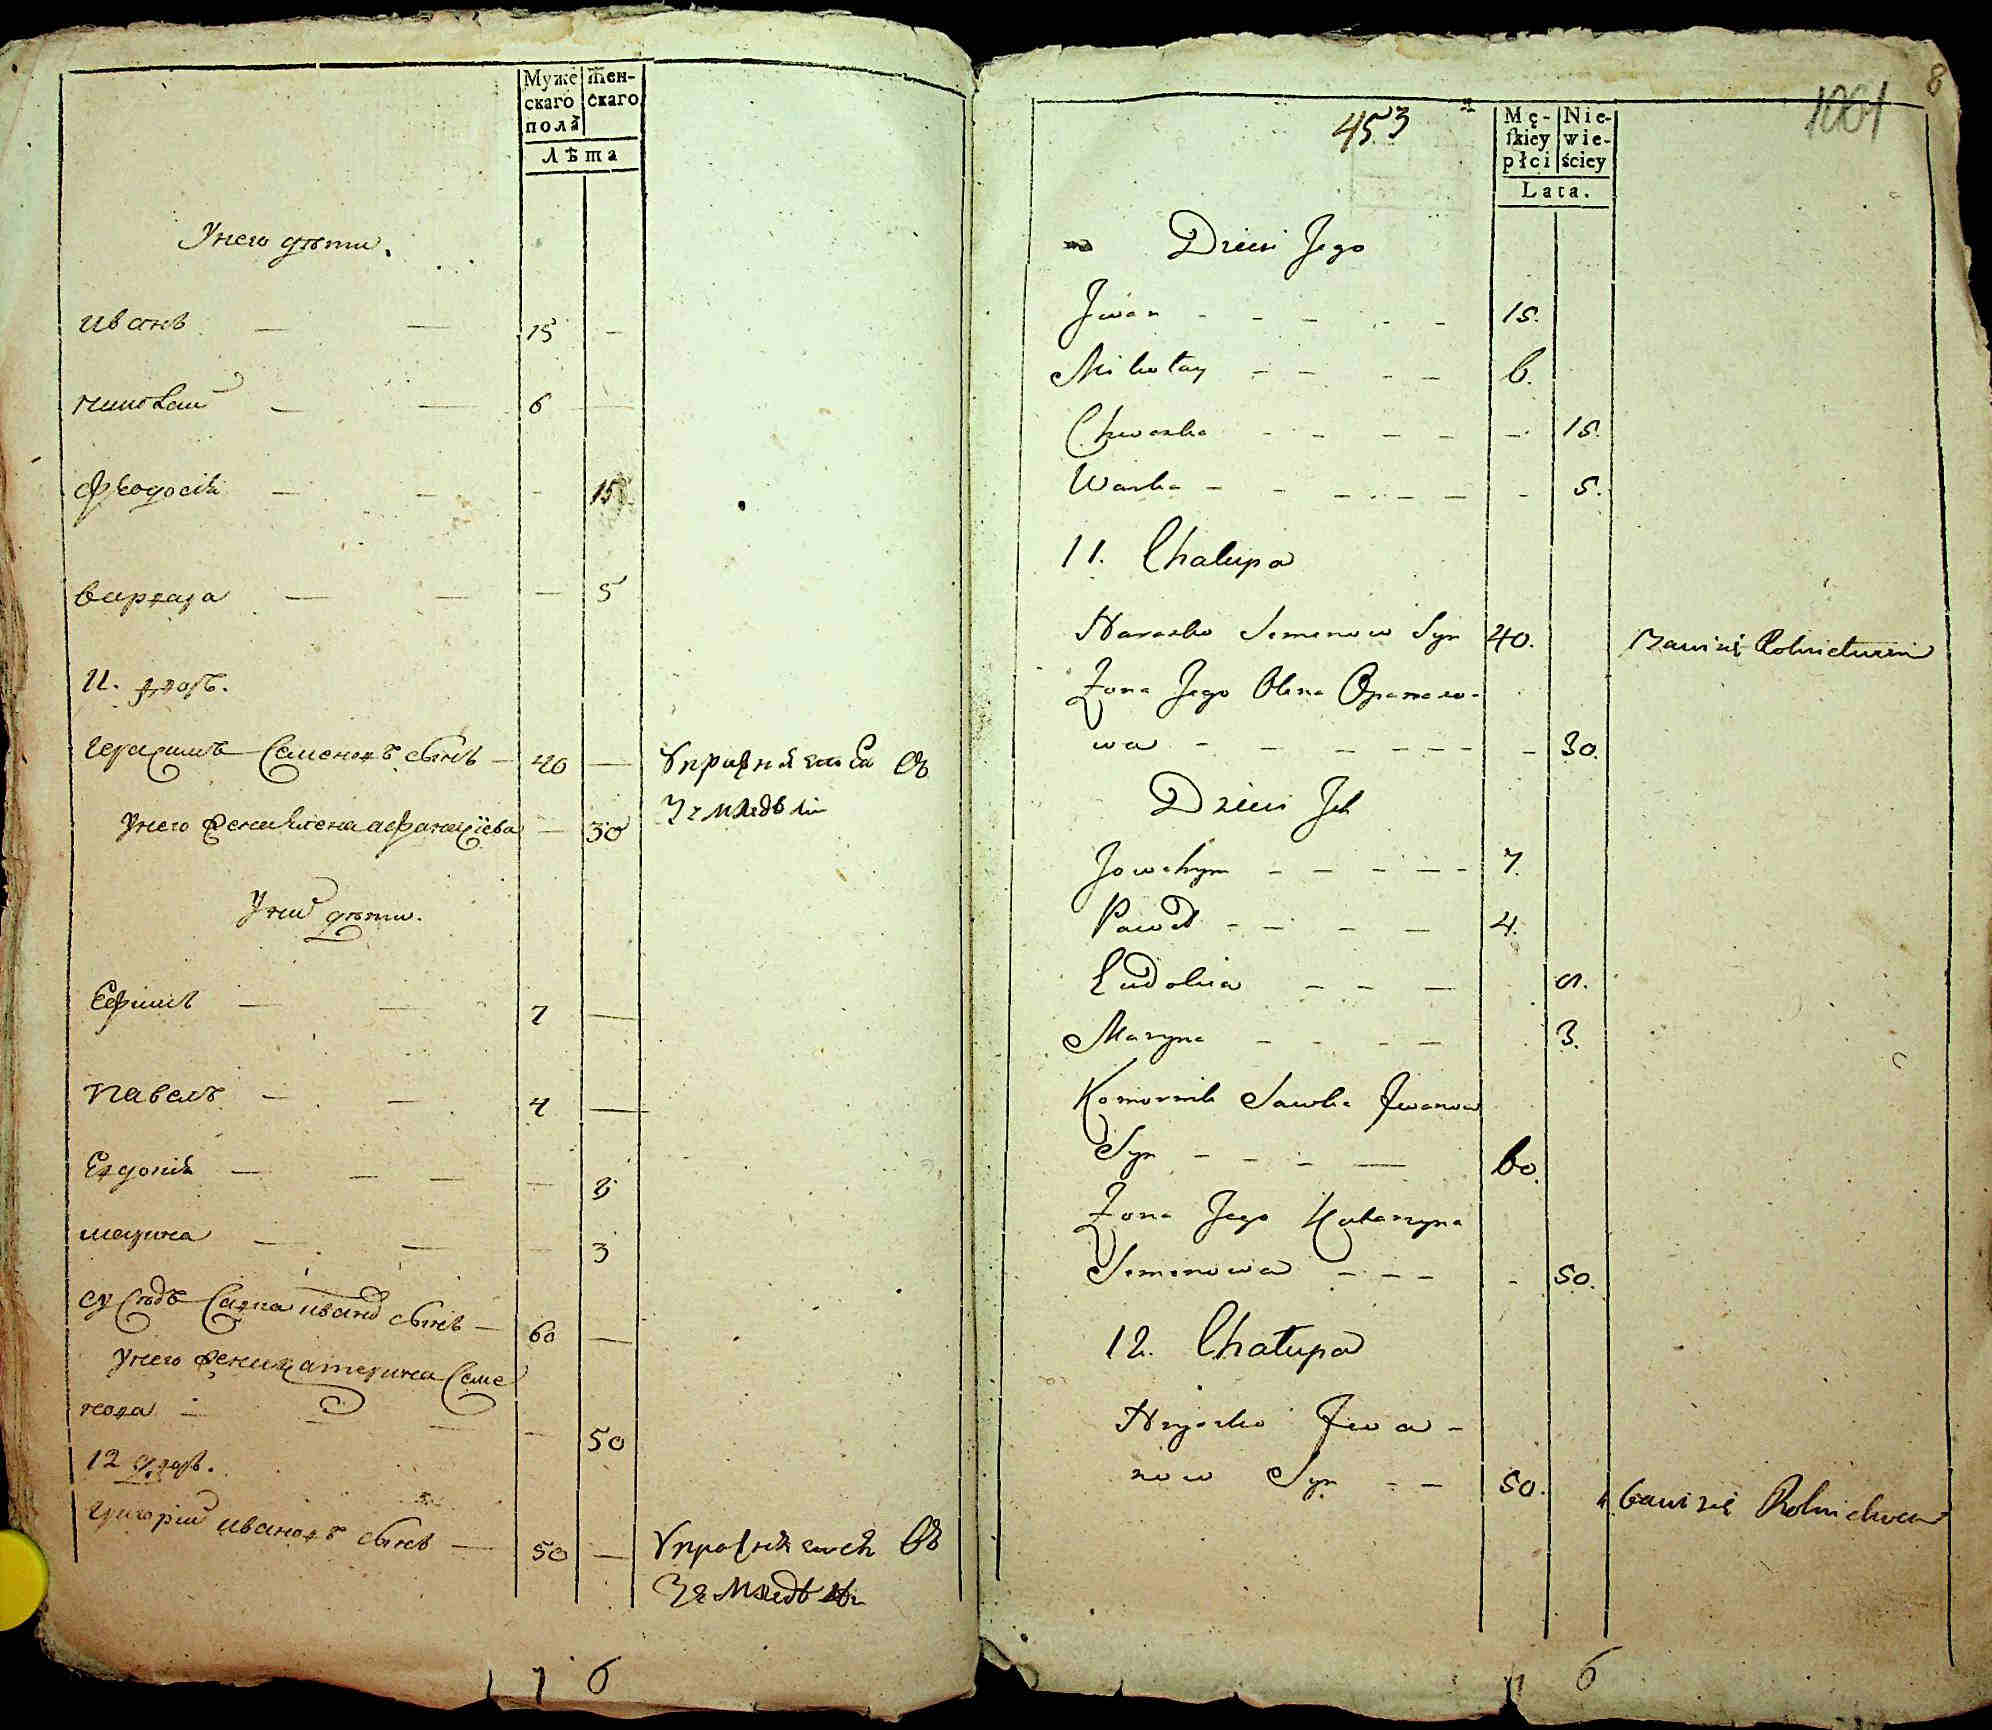 Муже
скаго
пола
Жен-
скаго
Лѣта
У него дѣти.
Иванъ — — 15 —
Николай — — 6 —
Феодосія — — - 15
Варвара — — — 5
11. дворъ.
Герасимъ Семеновъ сынъ — 40 — Упражняется въ
земледѣліи
У него жена Елена Афанасіева — 30
У них дѣти.
Ефимъ — — 7 —
Павелъ — — 4 —
Евдокія — — — — 8
Марина — — — 3
Сусѣдъ Савка Иванов сынъ — 60 —
У него жена Катерина Семе
нова — — — — 50
12 дворъ.
Григорій Ивановъ сынъ — 50 — Упражняется въ
земледѣліи
1 7 6
8
1001
453
Mę-
skiey
płci
Nie-
wie-
ściey
Lata.
Dzieci Jego
Jwan - - - - - 15.
Mikołay - - - - 6.
Chweska - - - - - 15.
Warka - - - - - - 5.
11. Chałupa
Harasko Semenow Syn 40. Bawi się Rolnictwem
Żona Jego Olena Opanaso-
wa - - - - - - - 30.
Dzieci Jch
Jowchym - - - - - 7.
Paweł - - - - 4.
Eudokia - - -
Maryna - - - - 3.
Komornik Sawka Jwanow
Syn - - - — 60.
Żona Jego Katarzyna
Semenowa - - - - 50.
12. Chałupa
Hryćko Jwa-
now Syn - - 50. bawi się Rolnictwem
1 6